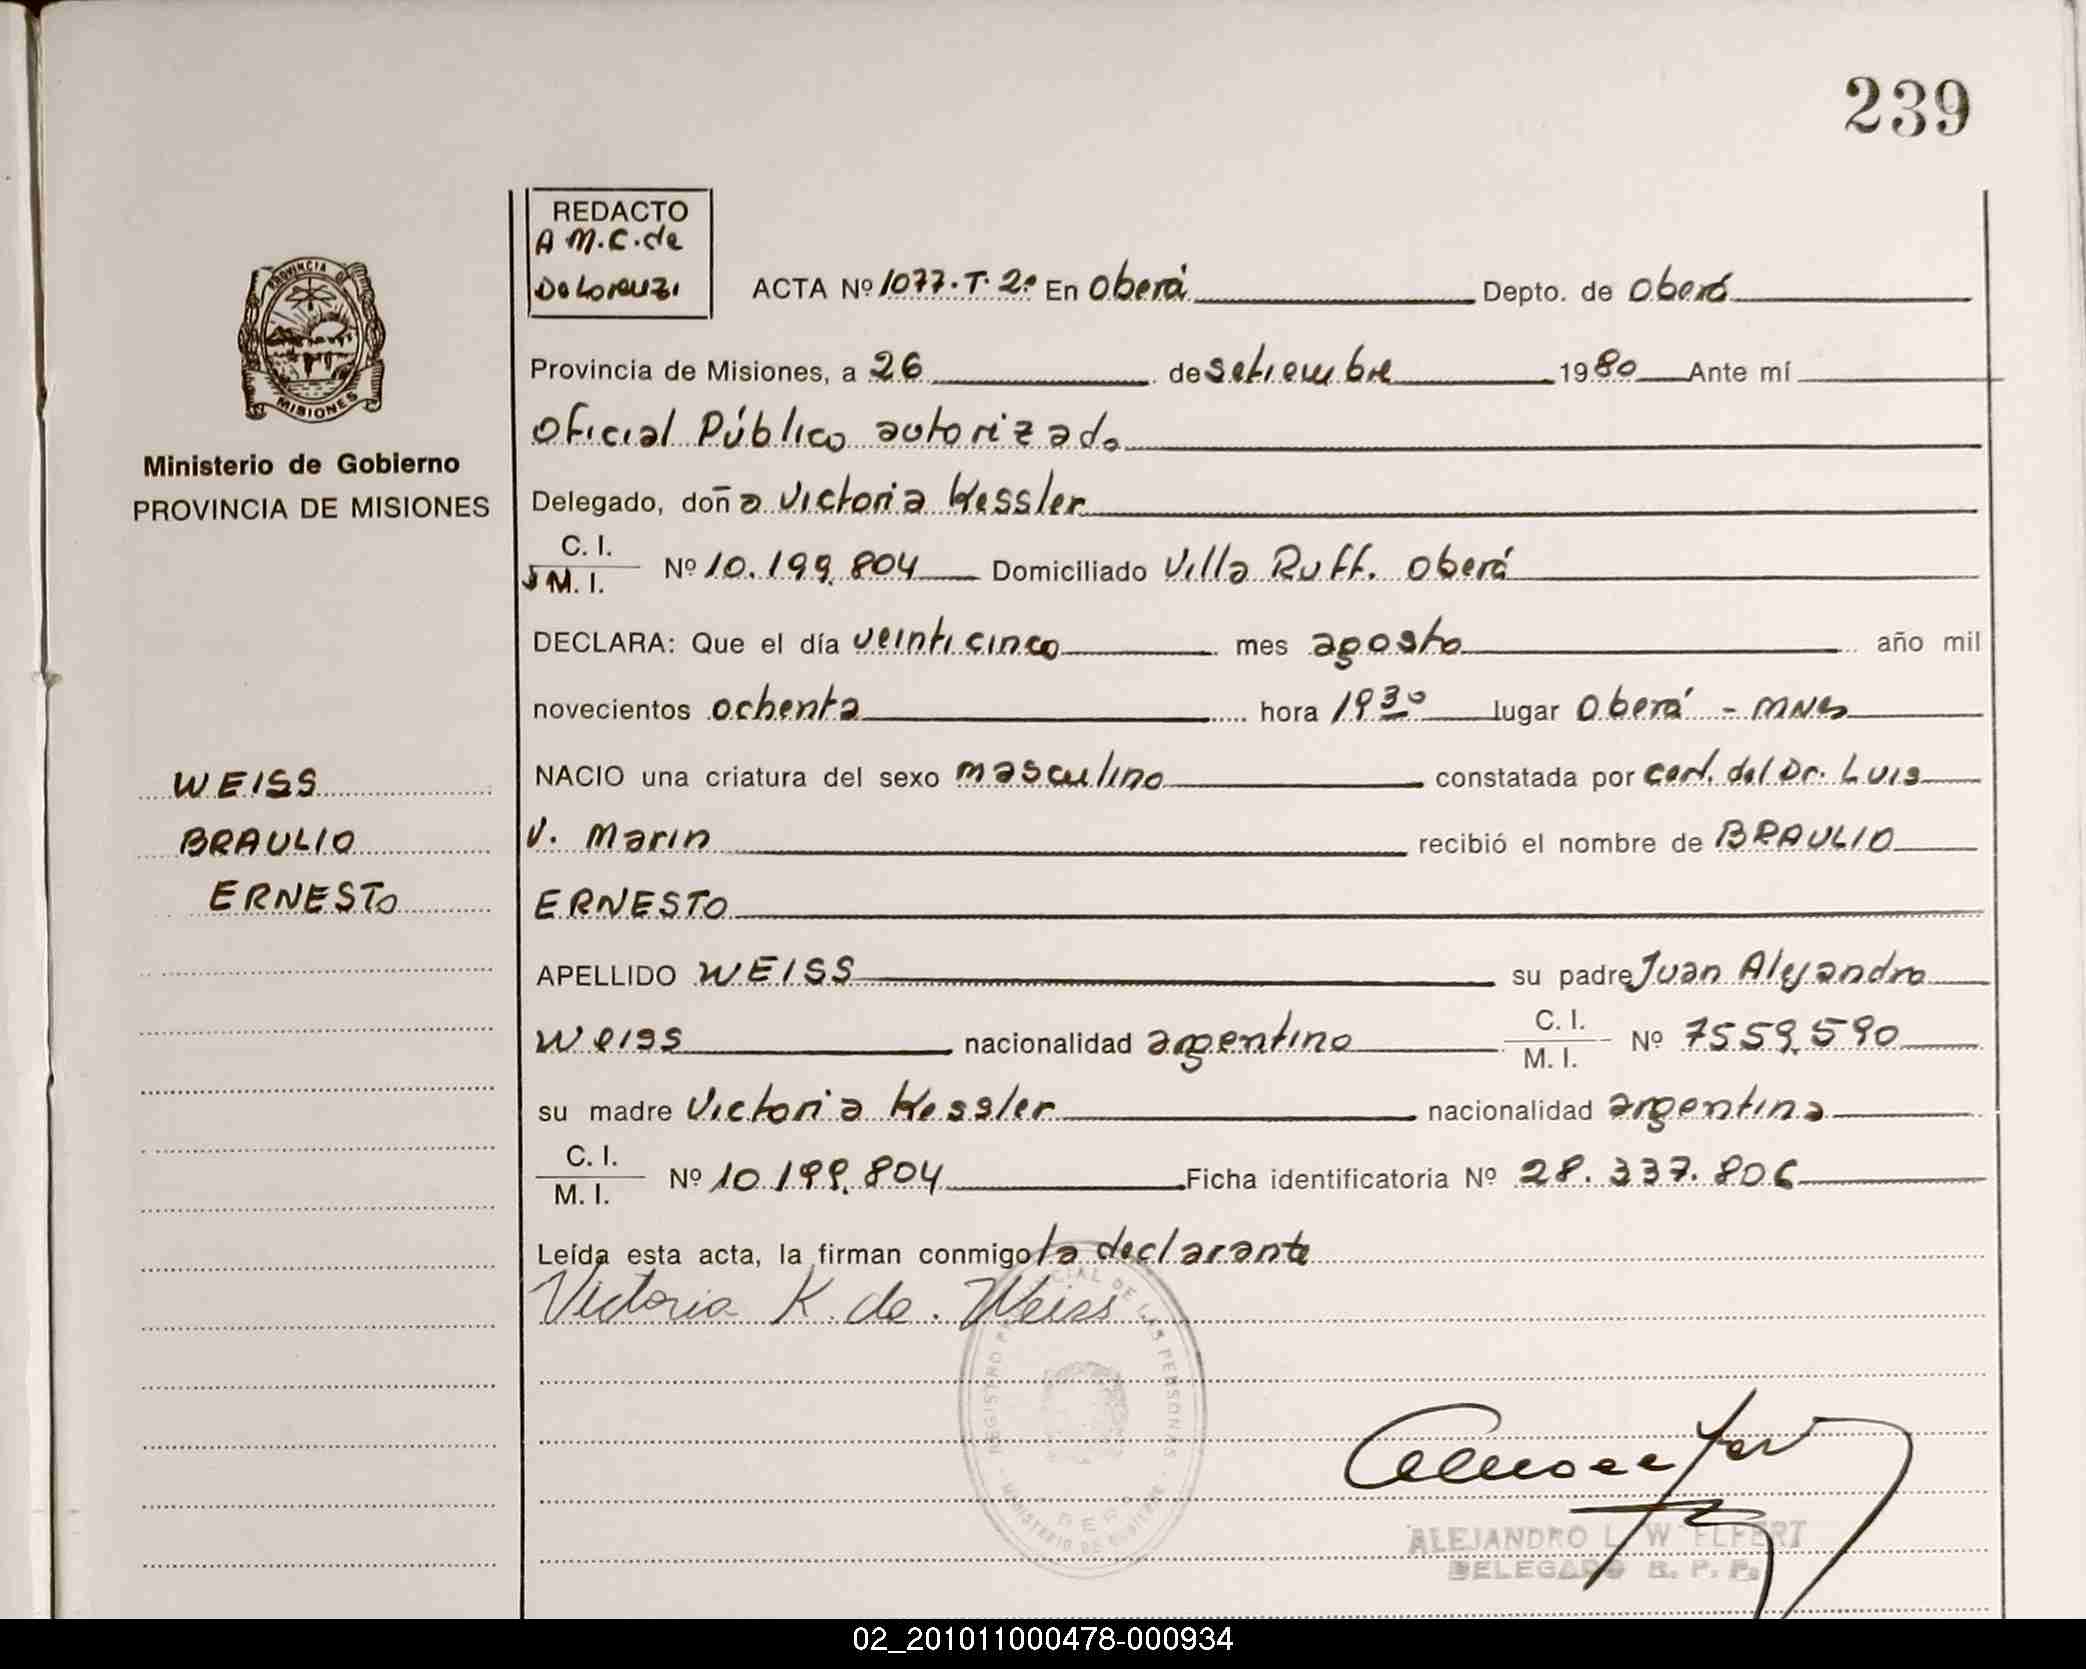 239
REDACTO
A M.C. de
De Lorenzi
PROVINCIA DE
MISIONES
ACTA Nº 1077.T.2º En Oberá Depto. de Oberá
Provincia de Misiones, a 26 de Setiembre 1980 Ante mí
Oficial Público autorizado
Ministerio de Gobierno
PROVINCIA DE MISIONES
Delegado, doña Victoria Kessler
C. I.
M. I. Nº 10.199.804 Domiciliado Villa Ruff. Oberá
DECLARA: Que el día veinticinco mes agosto año mil
novecientos ochenta hora 19 30 lugar Oberá - Mnes
WEISS
BRAULIO
ERNESTO
NACIO una criatura del sexo masculino constatada por cert. del Dr. Luis
V. Marin recibió el nombre de BRAULIO
ERNESTO
APELLIDO WEISS su padre Juan Alejandro
Weiss nacionalidad argentino C. I. M. I. Nº 7559.590
su madre Victoria Kessler nacionalidad argentina
C. I.
M. I. Nº 10.199.804 Ficha identificatoria Nº 28.337.806
Leída esta acta, la firman conmigo la declarante
Victoria K. de. Weiss
REGISTRO DE LAS PERSONAS
MINISTERIO DE GOBIERNO
ALEJANDRO L.
DELEGADO R. P. P.
02_201011000478-000934